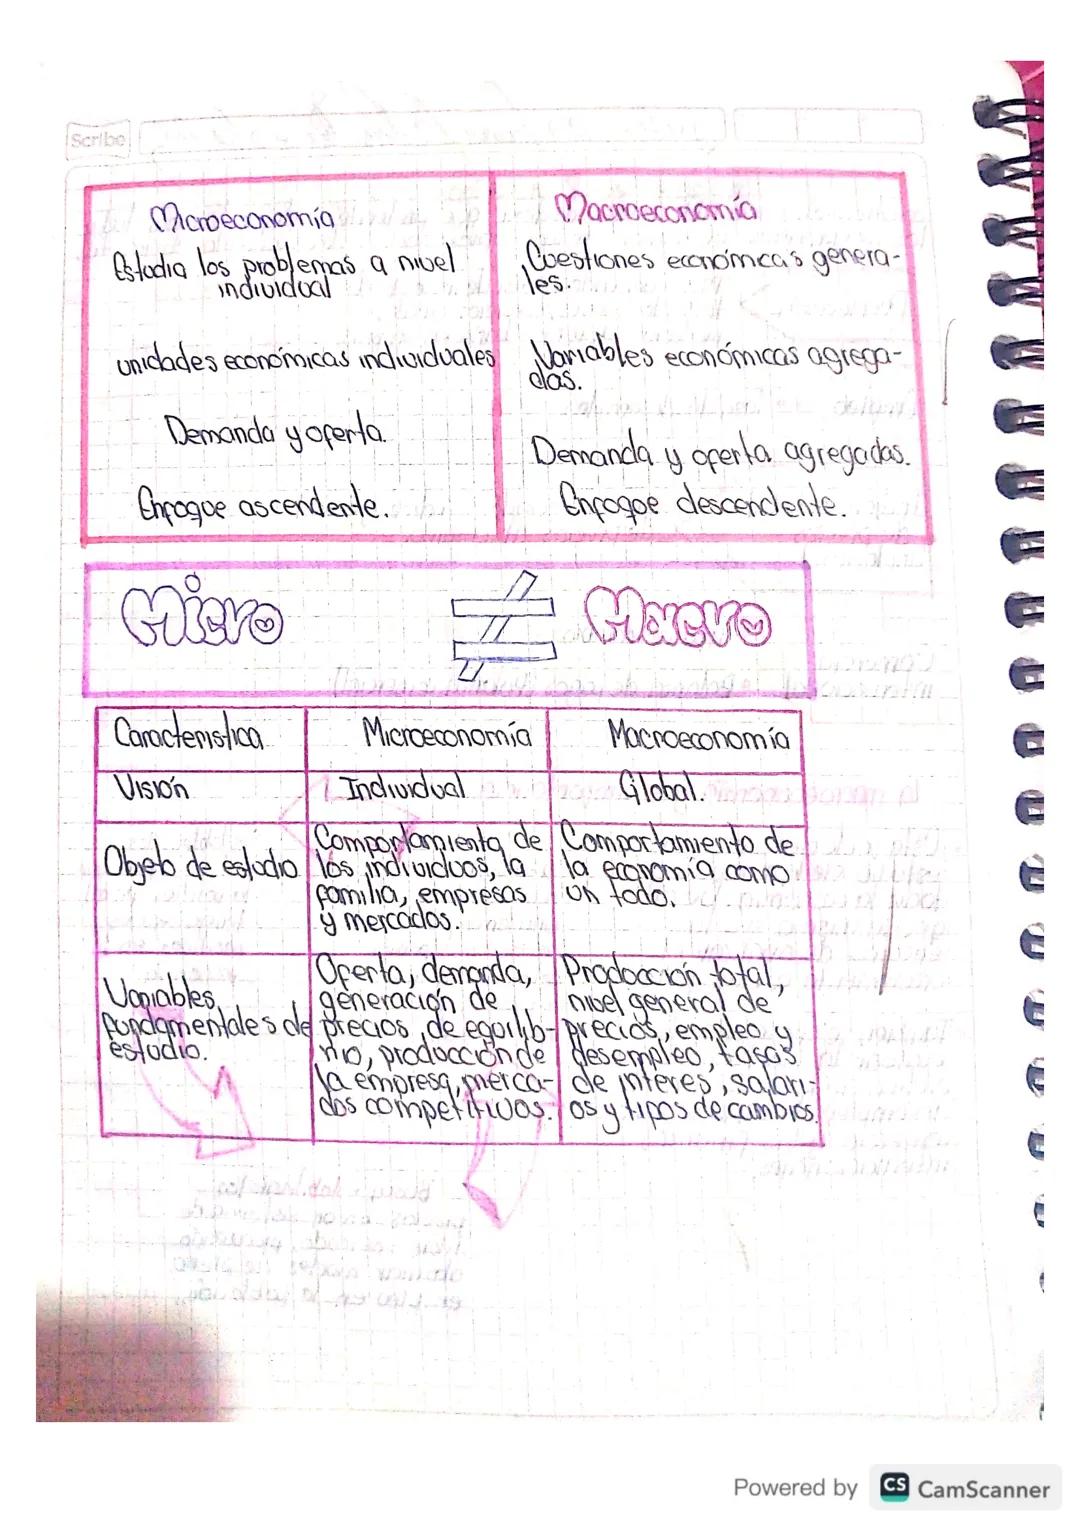 Scribe
Microeconomía
Estudia los problemas a nivel
individual
unidades económicas individuales
Demanda y oferta.
Enfoque ascendente.
Macroeconomía
Cuestiones económicas genera-
les.
Variables económicas agrega-
das.
Demanda y oferta agregadas.
Enfoque descendente.
Micro ≠ Macro
Caracteristica Microeconomía Macroeconomía
Visión Individual Global.
Objeto de estudio
Comportamiento de
los individuos, la
familia, empresas
y mercados.
Comportamiento de
la economía como
un todo.
Variables
fundamentales de
estudio.
Oferta, demanda,
generación de
precios, de equilib-
rio, producción de
la empresa, merca-
dos competitivos.
Producción total,
nivel general de
precios, empleo y
desempleo, tasas
de interes, salari-
os y tipos de cambios.
Powered by CS CamScanner